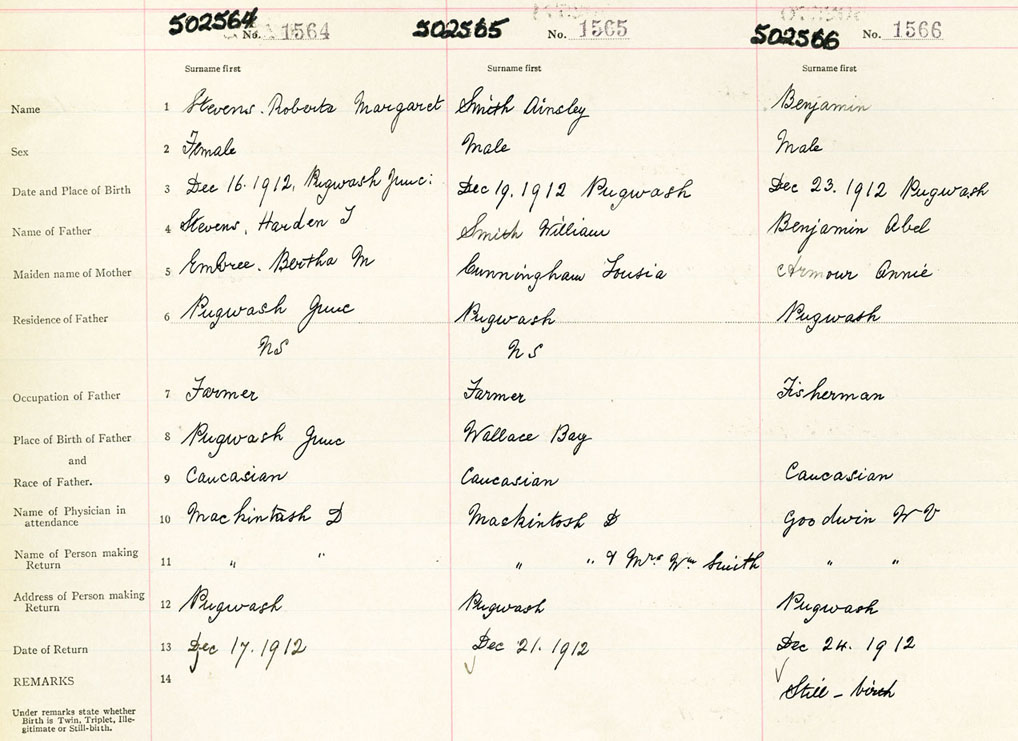 502564 No. 1564 502565 No. 1565 502566 No. 1566
Surname first Surname first Surname first
Name 1 Stevens. Roberta Margaret Smith Ainsley Benjamin
Sex 2 Female Male Male
Date and Place of Birth 3 Dec 16. 1912, Pugwash Junc: Dec 19. 1912 Pugwash Dec 23. 1912 Pugwash
Name of Father 4 Stevens, Harden T Smith William Benjamin Abel
Maiden name of Mother 5 Embree. Bertha M Cunningham Lousia Armour Annie
Residence of Father 6 Pugwash Junc Pugwash Pugwash
NS NS
Occupation of Father 7 Farmer Farmer Fisherman
Place of Birth of Father 8 Pugwash Junc Wallace Bay
and
Race of Father. 9 Caucasian Caucasian Caucasian
Name of Physician in
attendance 10 Mackintosh D Mackintosh D Goodwin W V
Name of Person making
Return 11 " " " " & Mrs Wm Smith " "
Address of Person making
Return 12 Pugwash Pugwash Pugwash
Date of Return 13 Dec 17. 1912 Dec 21. 1912 Dec 24. 1912
REMARKS 14 Still - birth
Under remarks state whether
Birth is Twin, Triplet, Ille-
gitimate or Still-birth.